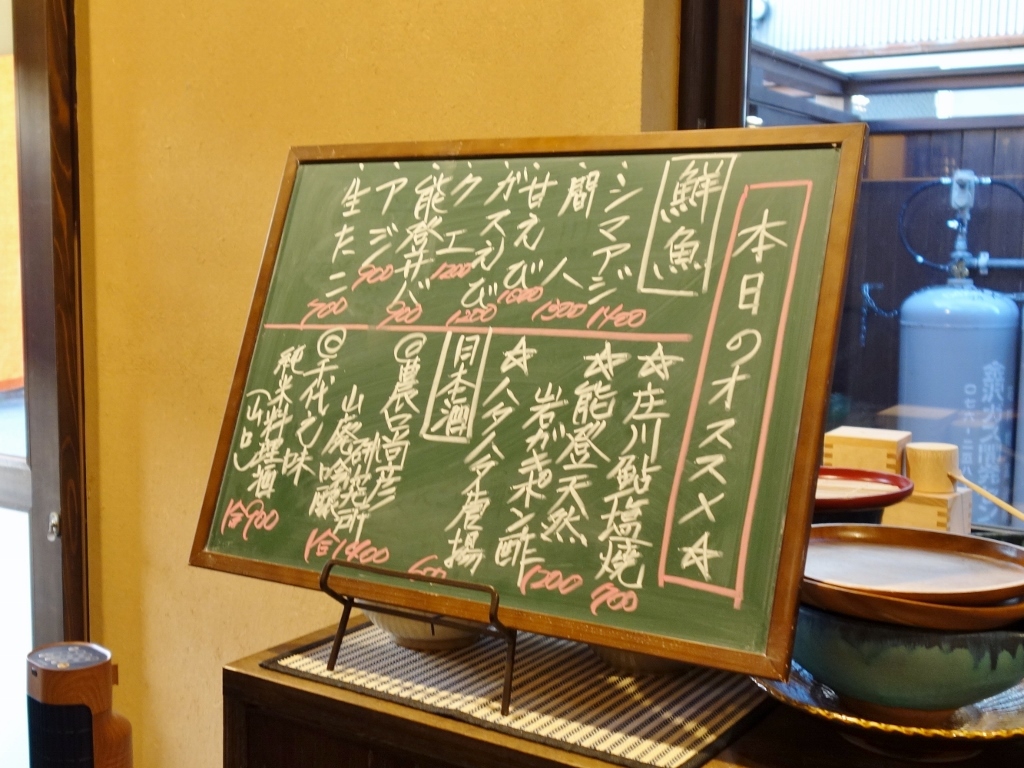 本日のオススメ☆
鮮魚
シマアジ 1400
間八 1300
甘えび 1000
ガスえび 1200
クエ 1200
能登サバ 900
アジ 900
生たこ 700
☆庄川鮎塩焼 900
☆能登天然
岩がきポン酢 1200
☆ハタハタ唐揚 600
日本酒
◎農口尚彦
研究所
山廃吟醸 1合1400
◎千代の味
純米料理
(山口) 1合900